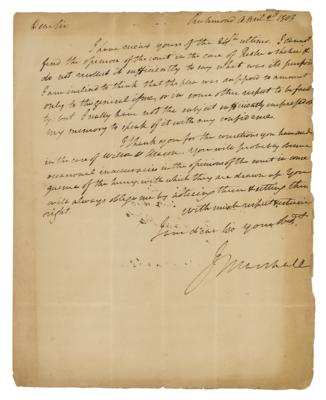 Dear Sir Richmond April 2d 1803
I have received yours of the 24th ultimo. I cannot
find the opinion of the court in the case of
do not recollect it sufficiently to say what was its purport
I am inclined to think that the plea was supposed to amount
only to the general issue, or in some other respect to be faul
ty but I really have not the subject sufficiently impressed on
my memory to speak of it with any confidence.
I thank you for the corrections you have made
in the case of Wilson & Mason. You will probably observe
occasional inaccuracies in the opinions of the court in conse
quence of the hurry with which they are drawn up. You
will always oblige me by noticing them & setting them
right.
With much respect & esteem
I am dear Sir your
J Marshall